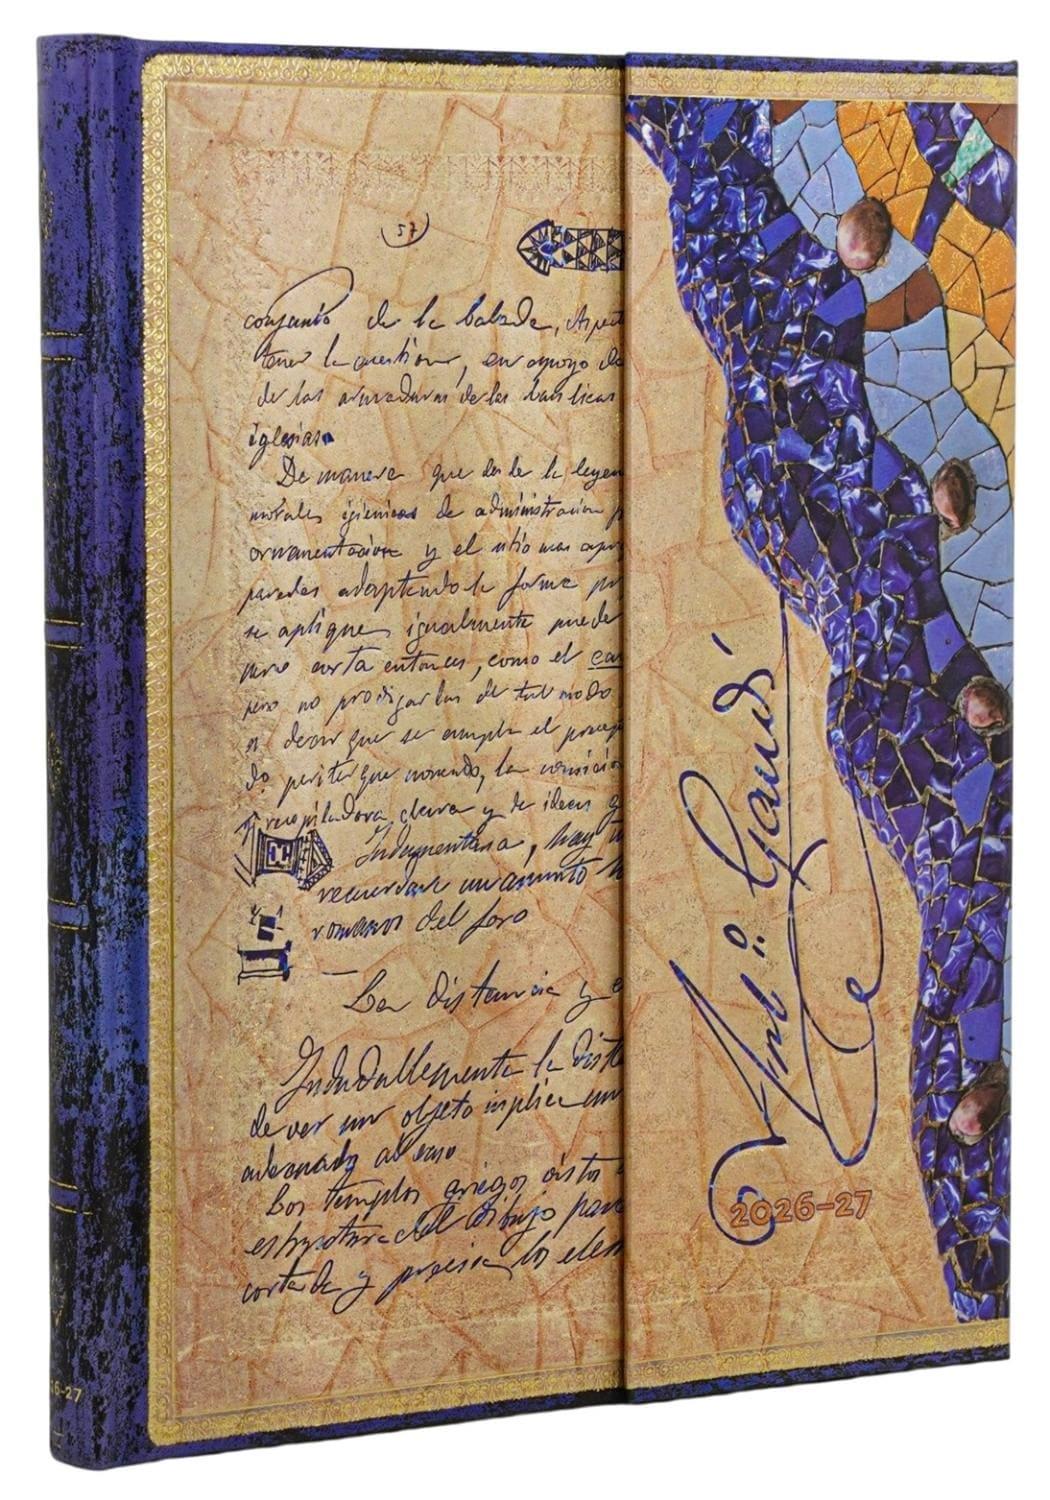 57
conjunto de la balada, Aspect
tener la cuestion, en apoyo de
de las armaduras de las basilicas
iglesias.
De manera que desde la leyen
morales igienicas de administracion p
ornamentación y el sitio mas apro
paredes adaptando la forma pr
se apliquen igualmente puede
corta entonces, como el ca
pero no prodigarlas de tal modo
decir que se cumpla el precep
do la
recopiladora, clara y de ideas g
Indumentaria, hay u
recuerdan un asunto
romanos del foro
— La distancia y e
Indudablemente la dista
de ver un objeto implica un
adecuado al caso
Los templos griegos estos
estructura del dibujo para
cortada y precisa, los elem
Antº. Gaudí
2026–27
6–27